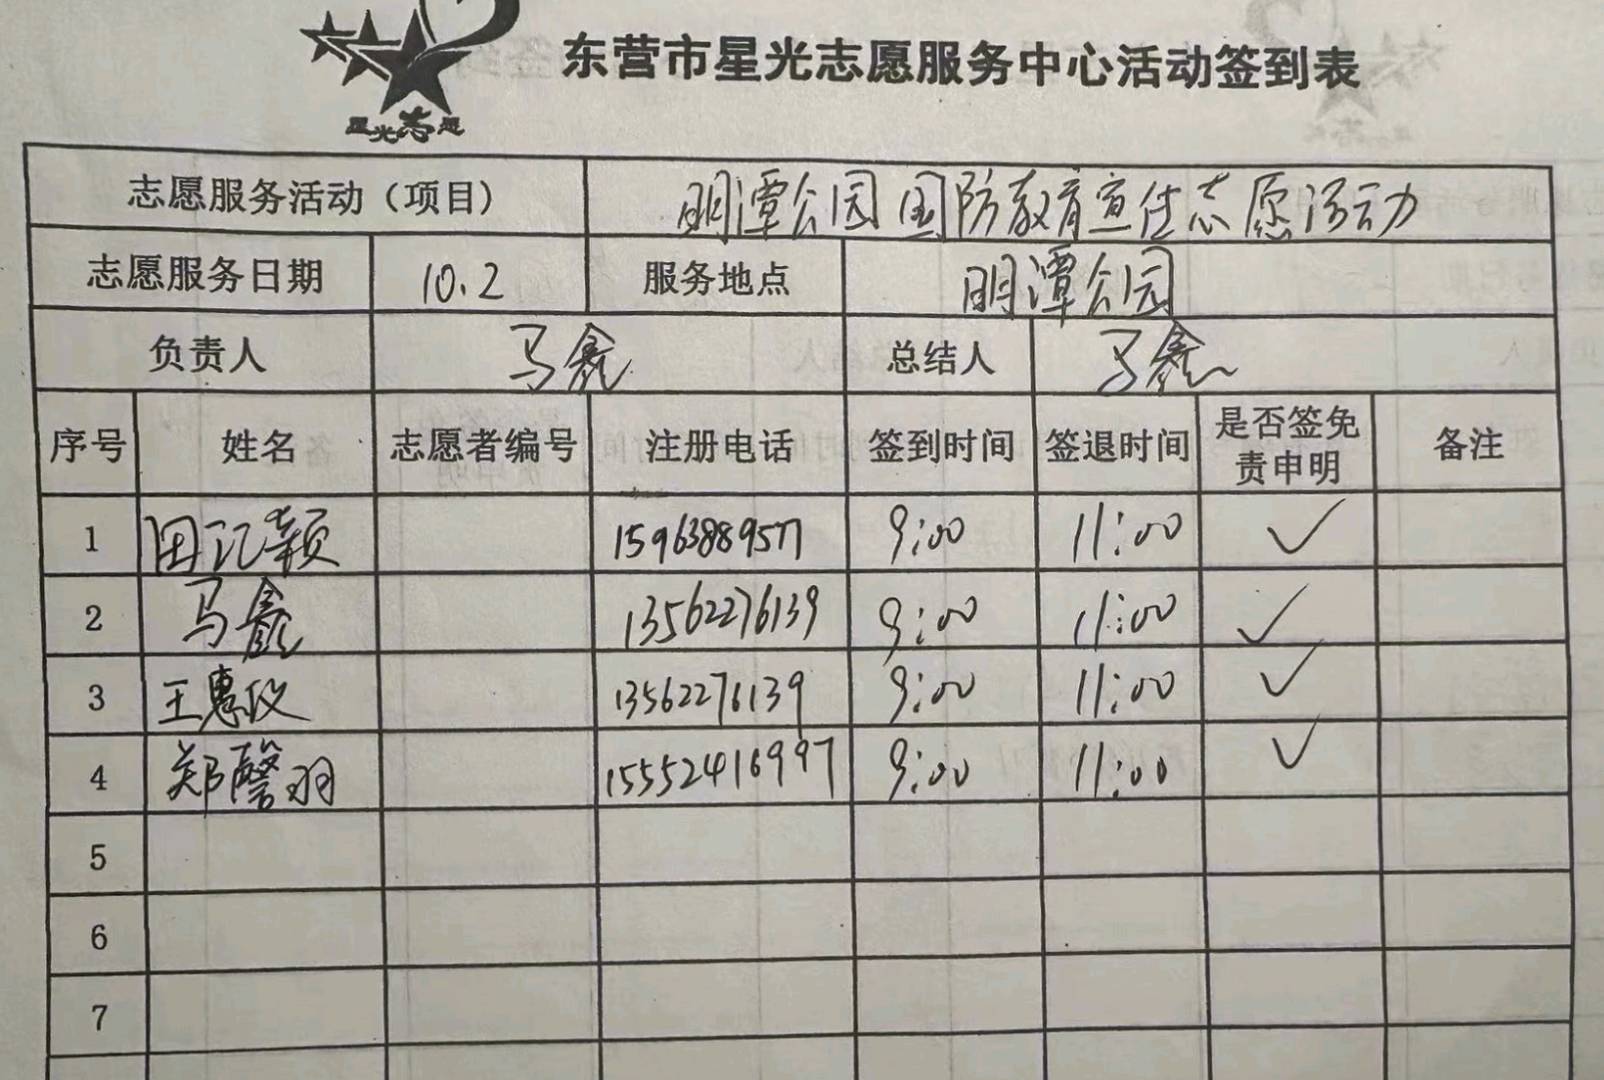 星光志愿
东营市星光志愿服务中心活动签到表
志愿服务活动（项目） 明潭公园国防教育宣传志愿活动
志愿服务日期 10.2 服务地点 明潭公园
负责人 马鑫 总结人 马鑫
序号 姓名 志愿者编号 注册电话 签到时间 签退时间 是否签免责申明 备注
1 田 颖 15963889577 9:00 11:00 ✓
2 马鑫 13562276139 9:00 11:00 ✓
3 王惠玟 13562276139 9:00 11:00 ✓
4 郑馨羽 15552416997 9:00 11:00 ✓
5
6
7